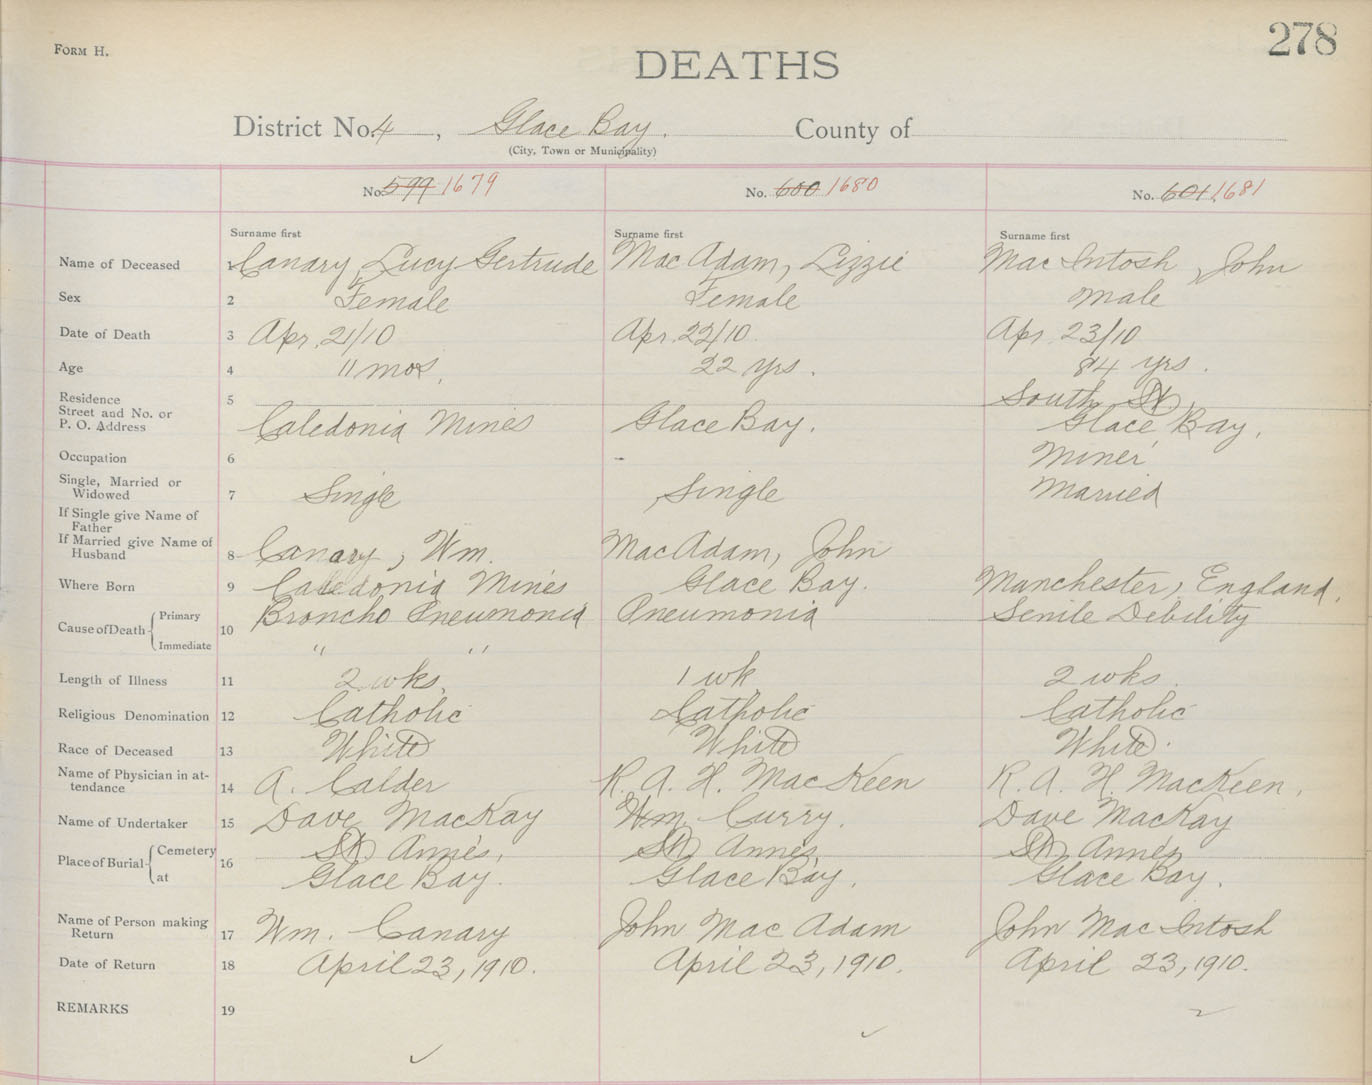 278
FORM H.
DEATHS
District No. 4, Glace Bay. County of
(City, Town or Municipality)
No. 599 1679 No. 600 1680 No. 601 1681
Surname first Surname first Surname first
Name of Deceased 1 Canary, Lucy Gertrude Mac Adam, Lizzie Mac Intosh, John
Sex 2 Female Female Male
Date of Death 3 Apr. 21/10 Apr. 22/10. Apr. 23/10
Age 4 11 mos. 22 yrs. 84 yrs.
Residence 5 South St.
Street and No. or
P. O. Address Caledonia Mines Glace Bay. Glace Bay.
Occupation 6 - Miner
Single, Married or
Widowed 7 Single Single Married
If Single give Name of
Father
If Married give Name of
Husband 8 Canary, Wm. MacAdam, John
Where Born 9 Caledonia Mines Glace Bay. Manchester, England.
Cause of Death { Primary 10 Broncho Pneumonia Pneumonia Senile Debility
Immediate " "
Length of Illness 11 2 wks. 1 wk 2 wks.
Religious Denomination 12 Catholic Catholic Catholic
Race of Deceased 13 White White White.
Name of Physician in at-
tendance 14 A. Calder R. A. H. MacKeen R. A. H. MacKeen.
Name of Undertaker 15 Dave MacKay Wm. Curry. Dave MacKay
Place of Burial { Cemetery 16 St. Anne's, St. Anne's, St. Anne's
at Glace Bay. Glace Bay. Glace Bay.
Name of Person making
Return 17 Wm. Canary John Mac Adam John Mac Intosh
Date of Return 18 April 23, 1910. April 23, 1910. April 23, 1910.
REMARKS 19